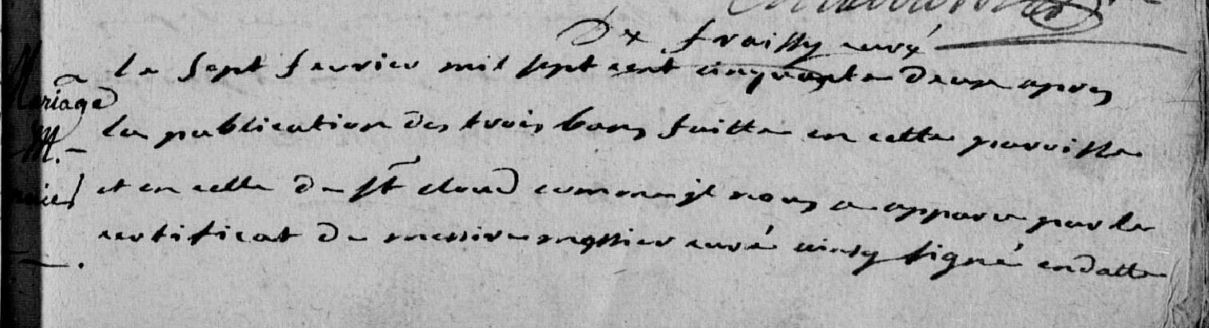 De fraissy curé
Mariage
M.
le sept fevrier mil sept cent cinquante deux apres
la publication des trois bans faitte en cette paroisse
et en celle de st cloud comme il nous a apparu par le
certificat de messire messier curé ainsy signé en datte